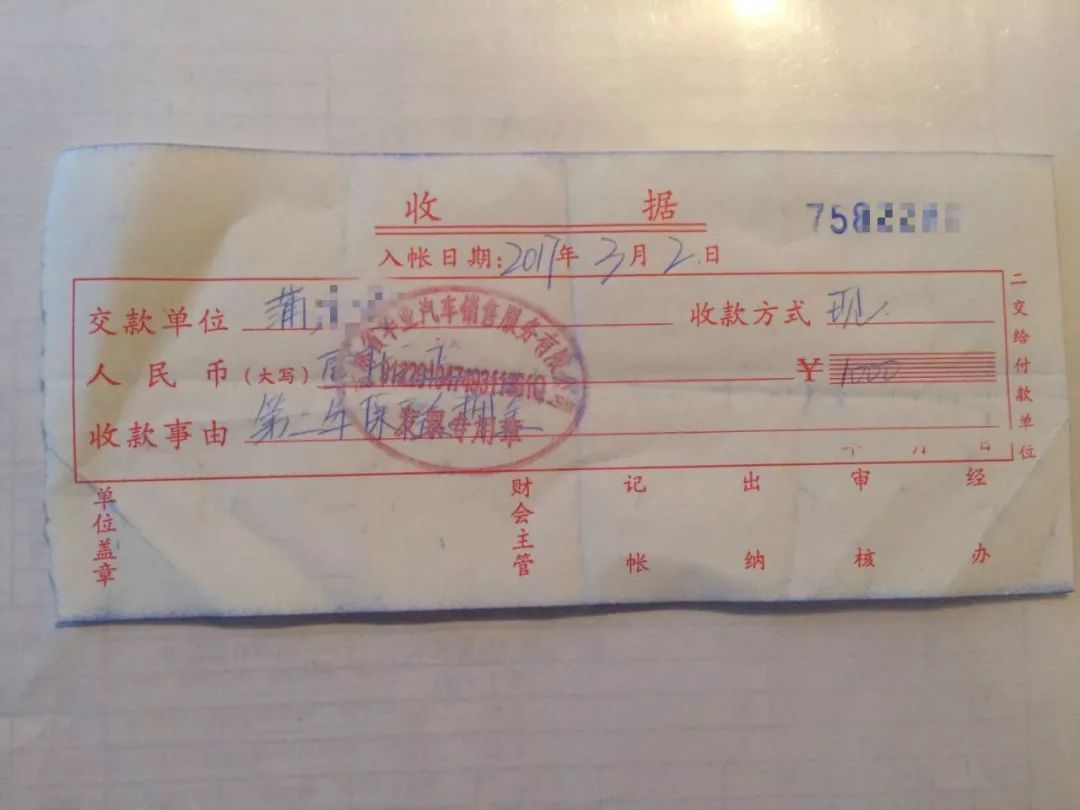 收 据
7582
入帐日期:2017年3月2日
交款单位 蒲 收款方式 现
人民币(大写) ¥1000
收款事由 第二年保险押金
汽车销售服务有限
发票专用章
二交给付款单位
年 月 日
单位盖章 财会主管 记帐 出纳 审核 经办